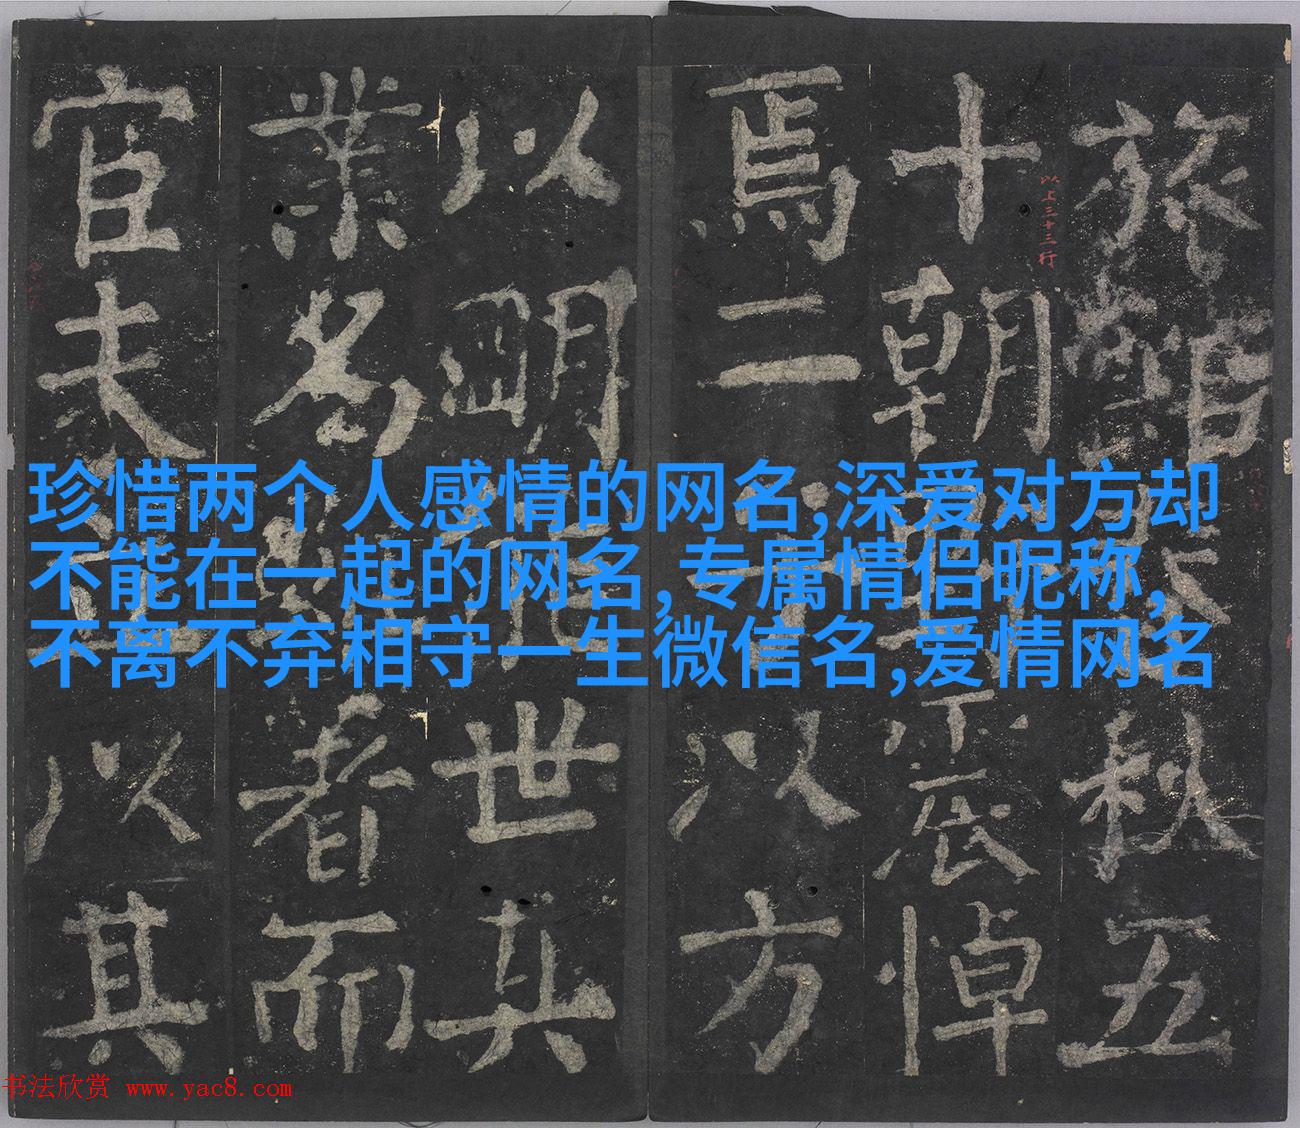 旅秋五
十朝震悼
焉二以方
以明世其
業名者而
官夫以其
以上三十三行
珍惜两个人感情的网名,深爱对方却
不能在一起的网名,专属情侣昵称,
不离不弃相守一生微信名,爱情网名
书法欣赏 www.yac8.com